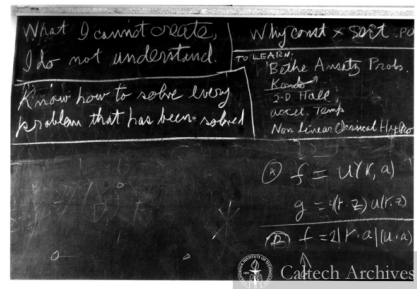 What I cannot create,
I do not understand.
Know how to solve every
problem that has been solved
Why const × sort . PO
TO LEARN:
Bethe Ansatz Probs.
Kondo
2-D Hall
accel. Temp
Non Linear Classical Hydro
(A) f = u(r, a)
g = u(r, z)
(B) f = 2|r·a|(u·a)
Caltech Archives